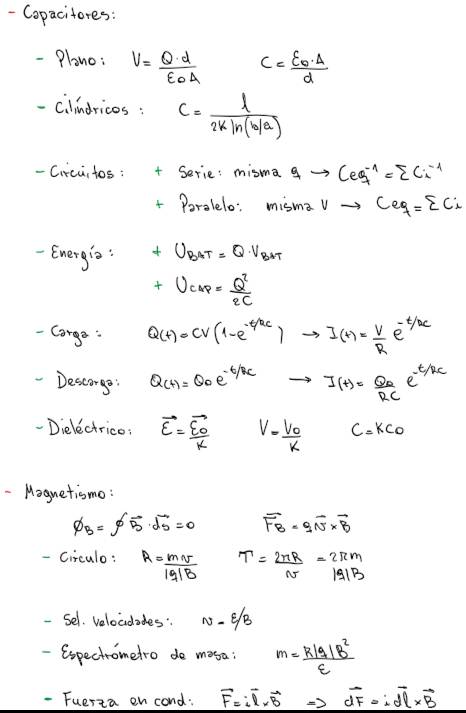 - Capacitores:
- Plano: V = Q·d / ε₀A    C = ε₀·A / d
- Cilíndricos: C = l / 2K ln(b/a)
- Circuitos: + Serie: misma q → Ceq⁻¹ = ΣCi⁻¹
+ Paralelo: misma V → Ceq = ΣCi
- Energía: + U_BAT = Q·V_BAT
+ U_CAP = Q² / 2C
- Carga: Q(t) = CV(1-e^(-t/RC)) → I(t) = V/R e^(-t/RC)
- Descarga: Q(t) = Q₀ e^(-t/RC) → I(t) = Q₀/RC e^(-t/RC)
- Dieléctrico: E⃗ = E⃗₀/K    V = V₀/K    C = KC₀
- Magnetismo:
Ø_B = ∮ B⃗·dS⃗ = 0    F⃗_B = q v⃗ × B⃗
- Círculo: R = mv / |q|B    T = 2πR / v = 2πm / |q|B
- Sel. velocidades: v = E/B
- Espectrómetro de masa: m = R|q|B² / E
- Fuerza en cond: F⃗ = i l⃗ × B⃗ => dF⃗ = i dl⃗ × B⃗